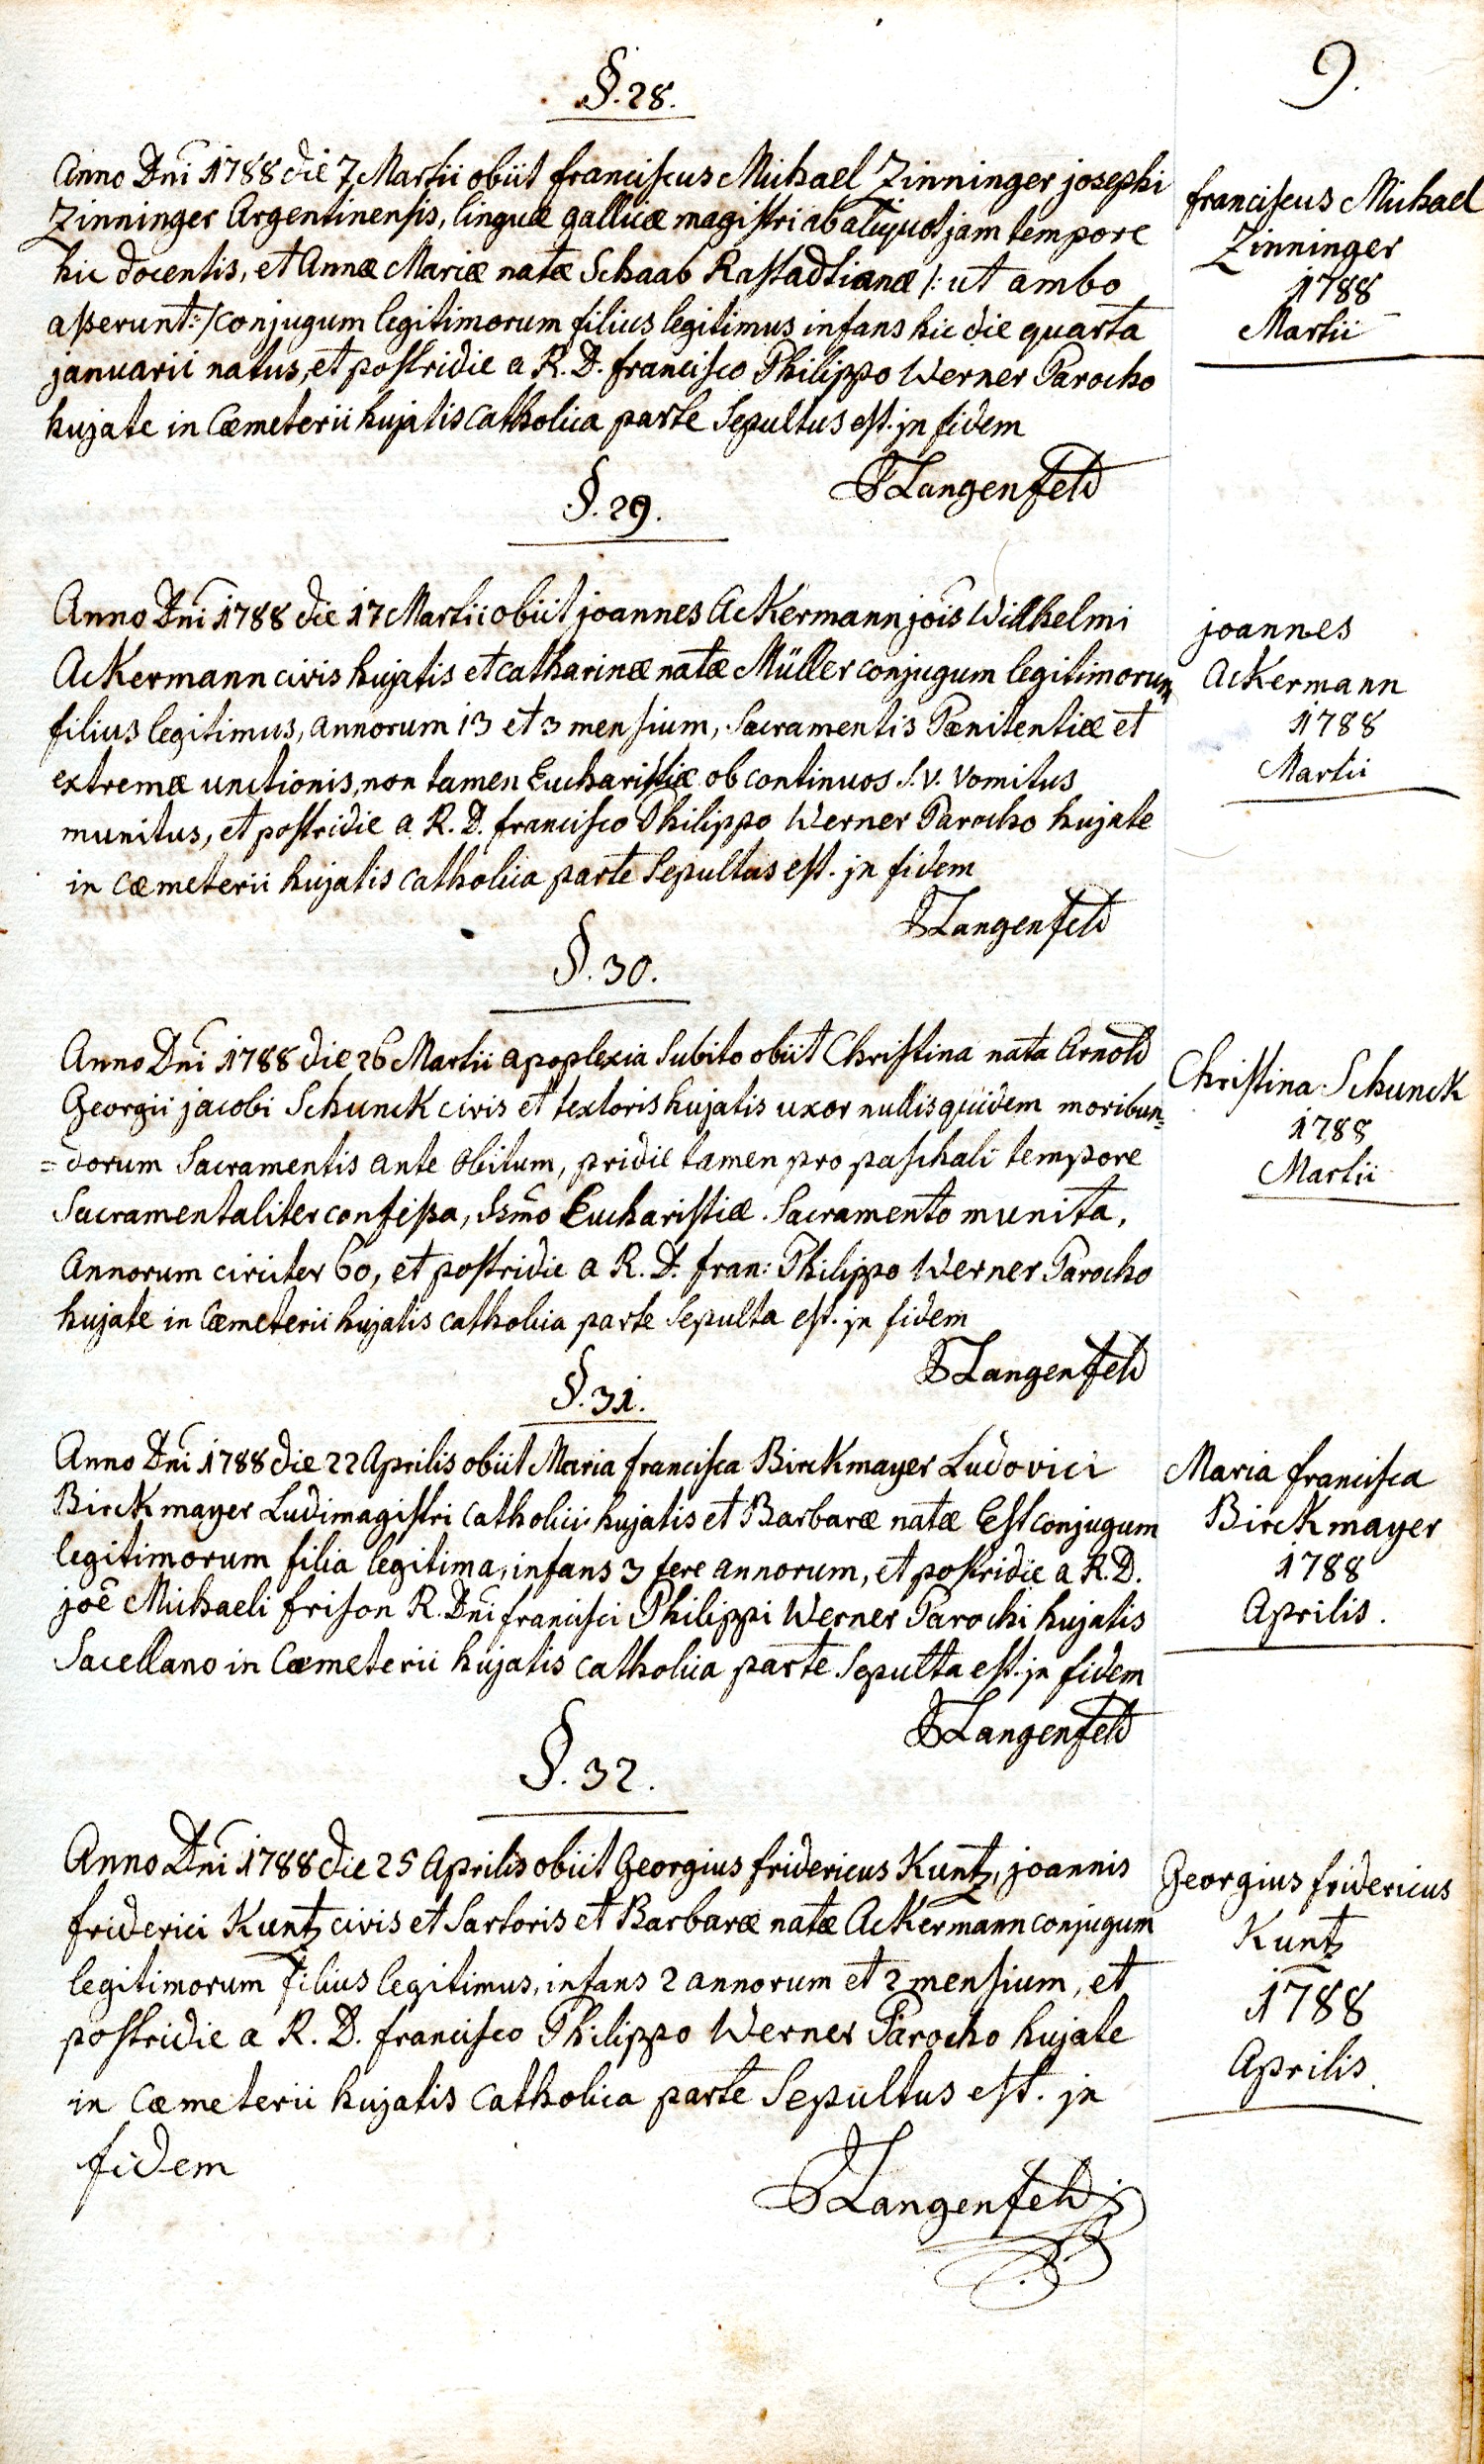 9.
§. 28.
Anno Dn̄i 1788 die 7 Martii obiit franciſcus Michael Zinninger josephi
Zinninger Argentinenſis, linguæ gallicæ magiſtri ab aliquot jam tempore
hic docentis, et Annæ Mariæ natæ Schaab Raſtadtianæ /: ut ambo
aſserunt :/ conjugum legitimorum filius legitimus infans hic die quarta
januarii natus, et poſtridie a R. D. franciſco Philippo Werner Parocho
hujate in Cæmeterii hujatis catholica parte Sepultus eſt. jn fidem
Langenfeld
franciſcus Michael
Zinninger
1788
Martii
§. 29.
Anno Dn̄i 1788 die 17 Martii obiit joannes Ackermann jōis Willhelmi
Ackermann civis hujatis et catharinæ natæ Müller conjugum legitimorum
filius legitimus, annorum 13 et 3 menſium, Sacramentis Pænitentiæ et
extremæ unctionis, non tamen Euchariſtiæ ob continuos S. v. vomitus
munitus, et poſtridie a R. D. franciſco Philippo Werner Parocho hujate
in cæmeterii hujatis catholica parte Sepultus eſt. jn fidem
Langenfeld
joannes
Ackermann
1788
Martii
§. 30.
Anno Dn̄i 1788 die 26 Martii apoplexia Subito obiit Chriſtina nata Arnold
Georgii jacobi Schunck civis et textoris hujatis uxor nullis quidem moribun=
=dorum Sacramentis ante obitum, pridie tamen pro paſchali tempore
Sacramentaliter confeſsa, Ssm̄o Euchariſtiæ Sacramento munita,
Annorum circiter 60, et poſtridie a R. D. fran: Philippo Werner Parocho
hujate in Cæmeterii hujatis catholica parte Sepulta eſt. jn fidem
Langenfeld
Chriſtina Schunck
1788
Martii
§. 31.
Anno Dn̄i 1788 die 22 Aprilis obiit Maria franciſca Birckmayer Ludovici
Birckmayer Ludimagiſtri catholici hujatis et Barbaræ natæ Eſt conjugum
legitimorum filia legitima, infans 3 fere annorum, et poſtridie a R. D.
jōe Michaeli friſon R. Dn̄i franciſci Philippi Werner Parochi hujatis
Sacellano in Cæmeterii hujatis catholica parte Sepulta eſt. jn fidem
Langenfeld
Maria franciſca
Birckmayer
1788
Aprilis.
§. 32.
Anno Dn̄i 1788 die 25 Aprilis obiit Georgius fridericus Kuntz, joannis
friderici Kuntz civis et Sartoris et Barbaræ natæ Ackermann conjugum
legitimorum filius legitimus, infans 2 annorum et 2 menſium, et
poſtridie a R. D. franciſco Philippo Werner Parocho hujate
in cæmeterii hujatis catholica parte Sepultus eſt. jn
fidem
Langenfeld
Georgius fridericus
Kuntz
1788
Aprilis.